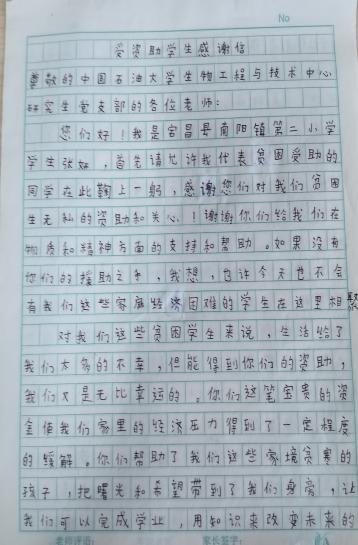 No
受资助学生感谢信
尊敬的中国石油大学生物工程与技术中心
研究生党支部的各位老师:
您们好!我是宕昌县南阳镇第二小学
学生张妤,首先请允许我代表贫困受助的
同学在此鞠上一躬,感谢您们对我们贫困
生无私的资助和关心!谢谢你们给我们在
物质和精神方面的支持和帮助。如果没有
你们的援助之手,我想,也许今天也不会
有我们这些家庭经济困难的学生在这里相聚
对我们这些贫困学生来说,生活给了
我们太多的不幸,但能得到你们的资助,
我们又是无比幸运的。你们这笔宝贵的资
金使我们家里的经济压力得到了一定程度
的缓解。你们帮助了我们这些家境贫寒的
孩子,把曙光和希望带到了我们身旁,让
我们可以完成学业,用知识来改变未来的
老师评语: 家长签字: